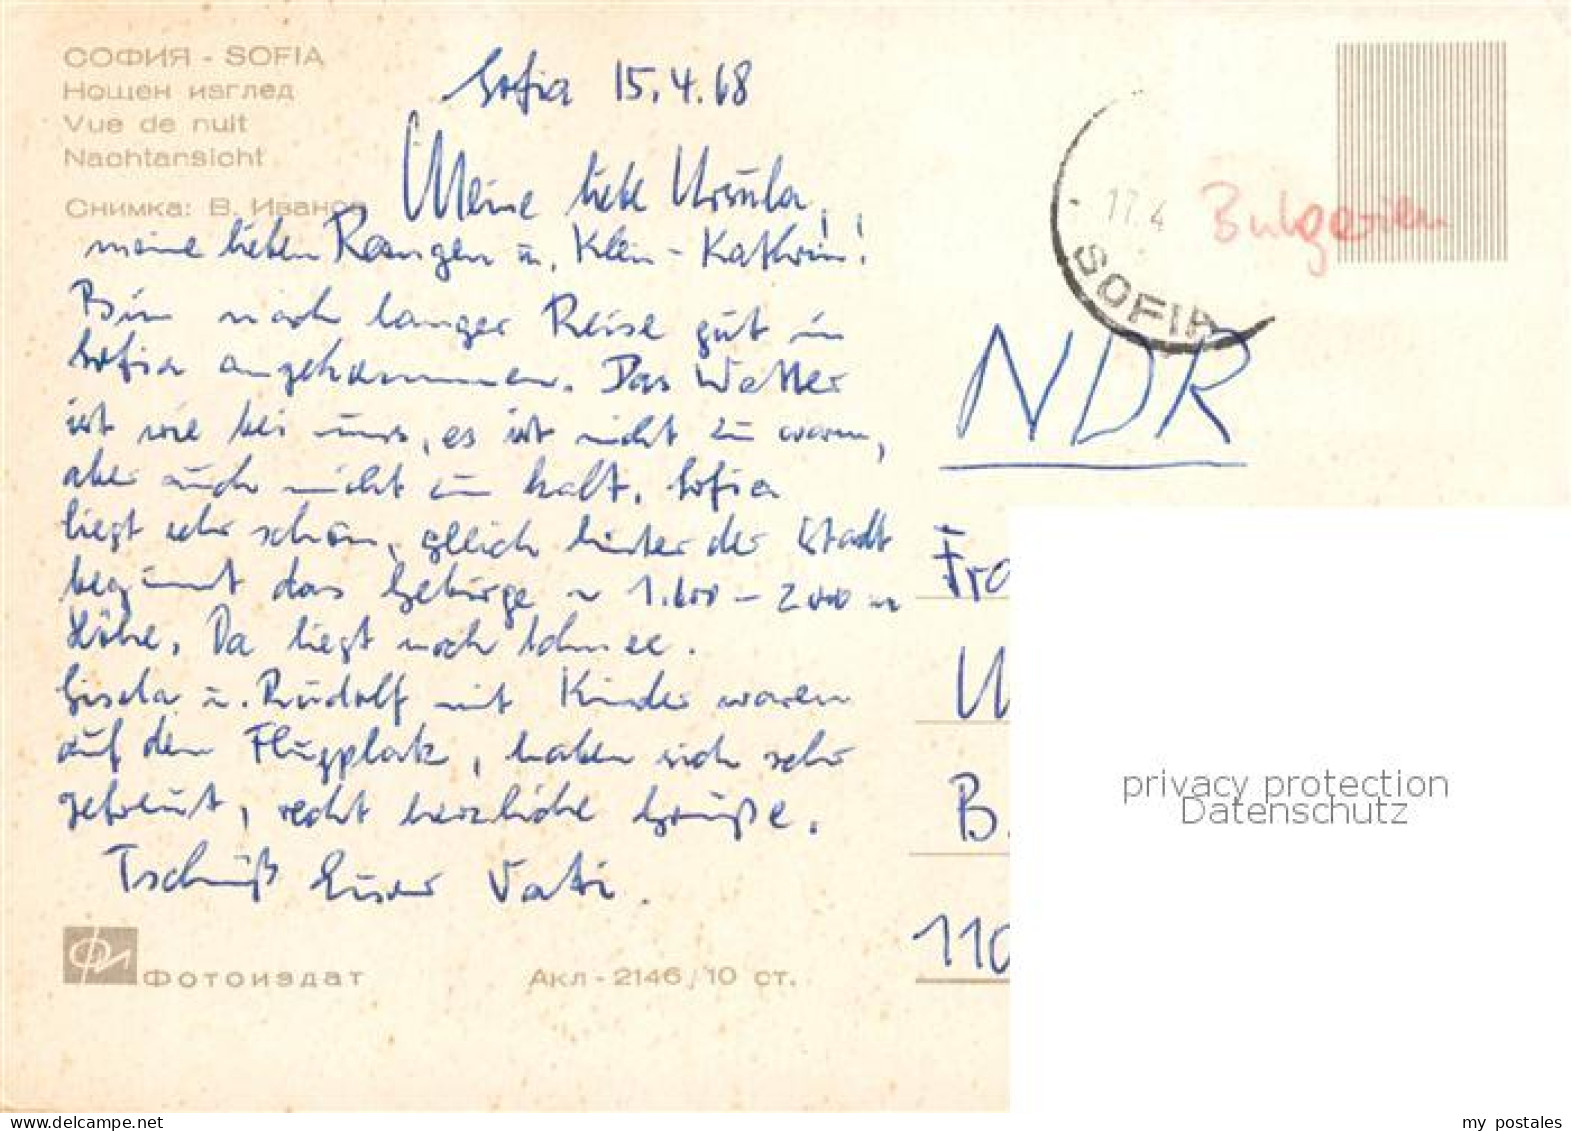 СОФИЯ - SOFIA
Нощен изглед
Vue de nuit
Nachtansicht
Снимка: В. Иванов
Sofia 15.4.68
Meine liebe Ursula,
meine lieben Rangen u. Klein-Kathrin!
Bin nach langer Reise gut in
Sofia angekommen. Das Wetter
ist wie bei uns, es ist nicht zu warm,
aber auch nicht zu kalt. Sofia
liegt sehr schön, gleich hinter der Stadt
beginnt das Gebirge ~ 1.600 - 2000 m
Höhe. Da liegt noch Schnee.
Gisela u. Rudolf mit Kinder waren
auf dem Flugplatz, haben sich sehr
gefreut, recht herzliche Grüße.
Tschüß Euer Vati.
Фотоиздат
Акл - 2146/10 ст.
17.4
SOFIA
Bulgarien
NDR
Fra
U
B.
110
privacy protection
Datenschutz
my postales